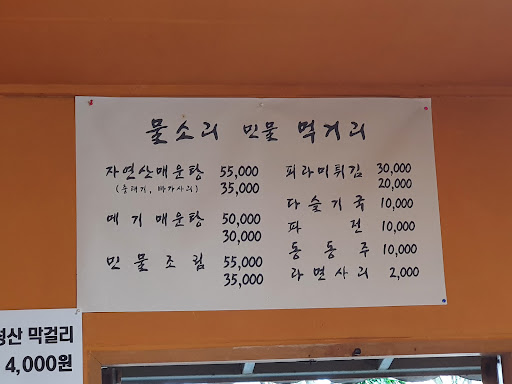 물소리 민물 먹거리
자연산매운탕 55,000
(중태기, 빠가사리) 35,000
메기매운탕 50,000
30,000
민물조림 55,000
35,000
피라미튀김 30,000
20,000
다슬기국 10,000
파전 10,000
동동주 10,000
라면사리 2,000
성산 막걸리
4,000원